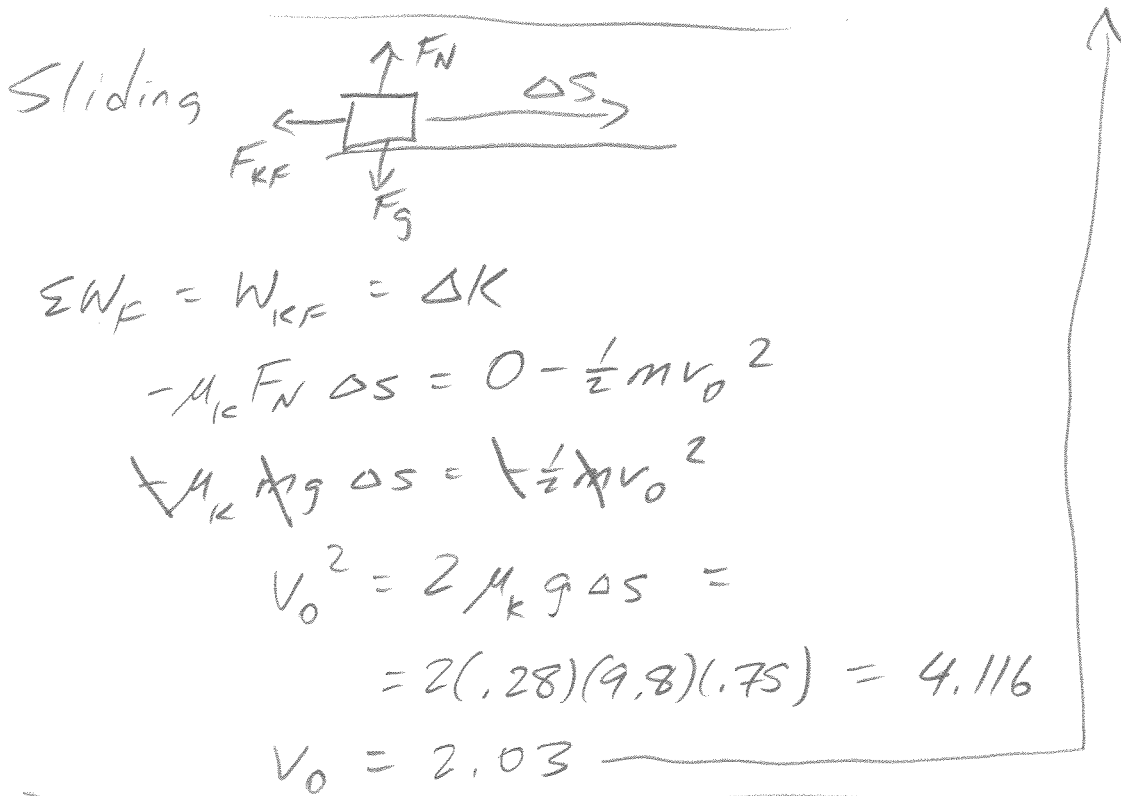 Sliding
F_N
Δs
F_KF
F_g
ΣW_F = W_KF = ΔK
-μ_k F_N Δs = 0 - ½mv₀²
-μ_k mg Δs = -½mv₀²
v₀² = 2μ_k g Δs =
= 2(.28)(9.8)(.75) = 4.116
v₀ = 2.03